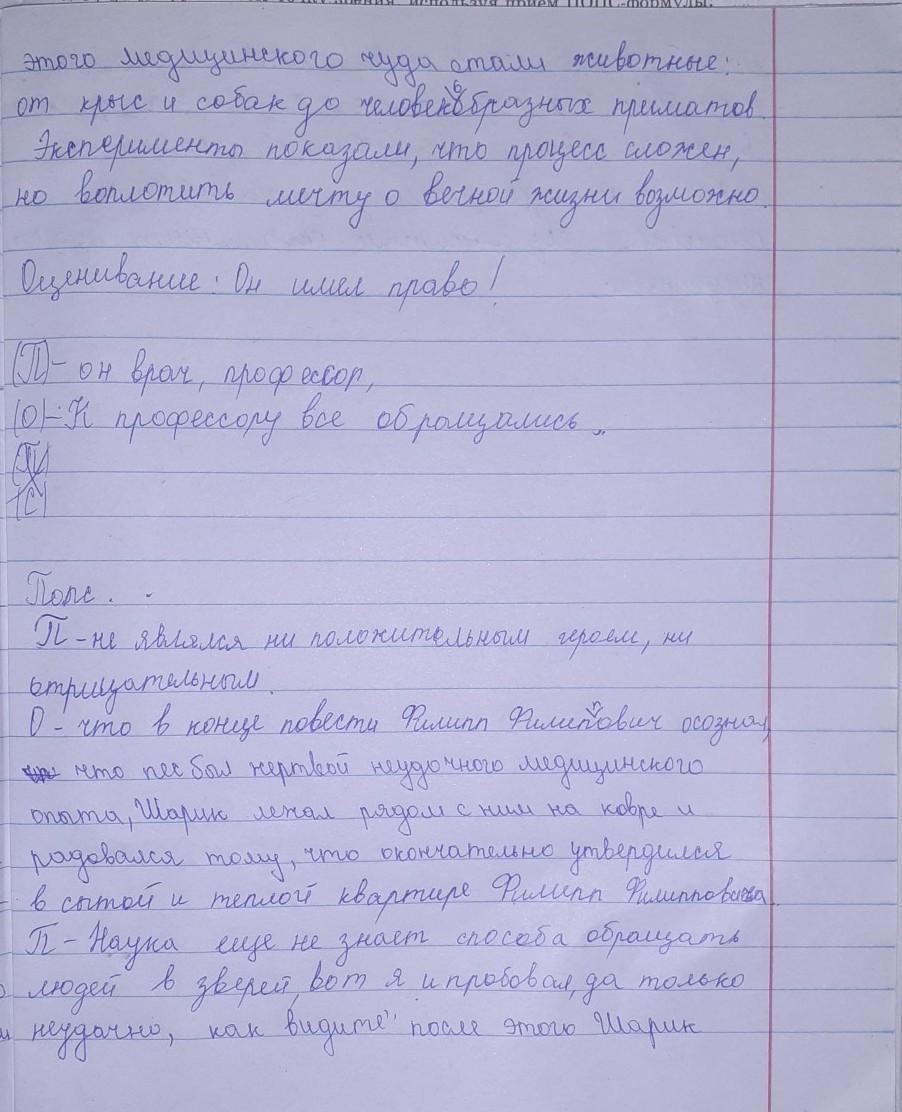 используя приём ПОПС-формулы.
этого медицинского чуда стали животные:
от крыс и собак до человекообразных приматов.
Эксперименты показали, что процесс сложен,
но воплотить мечту о вечной жизни возможно.
Оценивание: Он имел право!
(П)- он врач, профессор,
(О)-К профессору все обращались
(П)
(С)
Попс.
П-не являлся ни положительным героем, ни
отрицательным.
О-что в конце повести Филипп Филиппович осознал,
что пес был жертвой неудочного медицинского
опыта, Шарик лежал рядом с ним на ковре и
радовался тому, что окончательно утвердился
в сытой и теплой квартире Филипп Филипповича.
П-Наука еще не знает способа обращать
людей в зверей, вот я и пробовал, да только
неудачно, как видите" после этого Шарик